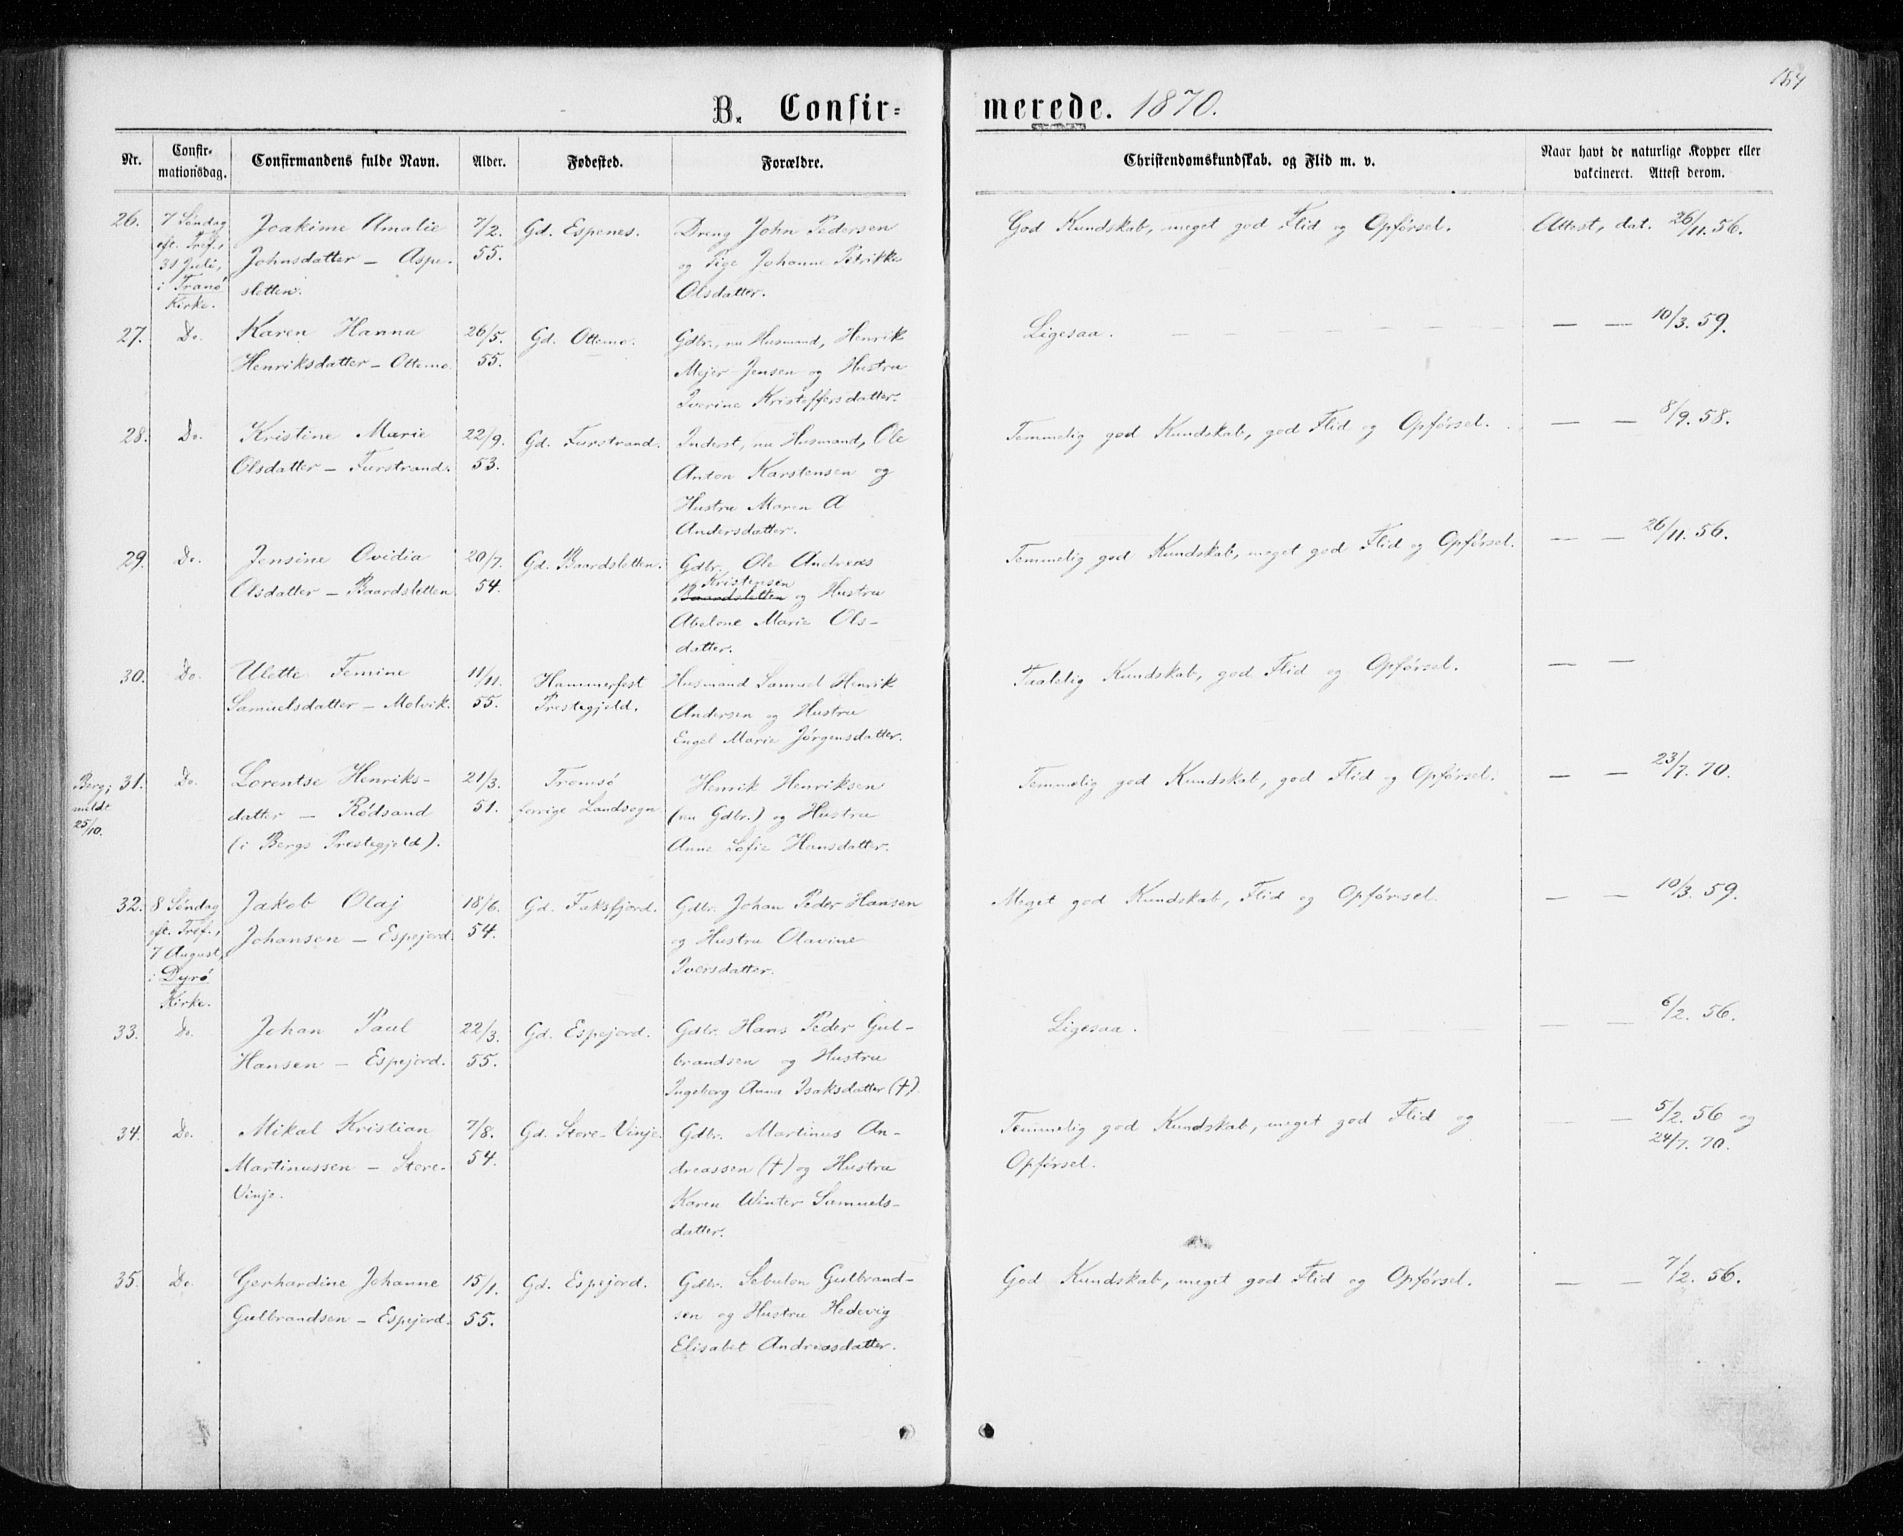 154
B. Confir=
merede. 1870.
Nr.
Confir-
mationsdag.
Confirmandens fulde Navn.
Alder.
Fødested.
Forældre.
Christendomskundskab, og Flid m. v.
Naar havt de naturlige Kopper eller
vakcineret. Attest derom.
26. 7 Søndag Joakime Amalie 7/2. Gd. Espenes. Dreng John Pedersen God Kundskab, meget god Flid og Opførsel. Attest, dat. 26/11. 56.
eft. Tref., Johnsdatter – Aspe- 55. og Pige Johanne Petrikke
31 Juli, sletten. Olsdatter.
i Tranø
Kirke.
27. Do. Karen Hanna 26/5. Gd. Ottemo. Gdbr., nu Husmand, Henrik Ligesaa. — — 10/3. 59.
Henriksdatter – Ottemo. 55. Mejer Jensen og Hustru
Iverine Kristoffersdatter.
28. Do. Kristine Marie 22/9. Gd. Furstrand. Inderst, nu Husmand, Ole Temmelig god Kundskab, god Flid og Opførsel. — — 8/9. 58.
Olsdatter – Furstrand. 53. Anton Karstensen og
Hustru Maren A
Andersdatter.
29. Do. Jensine Ovidia 20/7. Gd. Baardsletten. Gdbr. Ole Andreas Temmelig god Kundskab, meget god Flid og Opførsel. — — 26/11. 56.
Kristensen
Olsdatter – Baardsletten 54. Baardsletten og Hustru
Abelone Marie Ols-
datter.
30. Do. Ulette Femine 11/11. Hammerfest Husmand Samuel Henrik Taalelig Kundskab, god Flid og Opførsel. — —
Samuelsdatter – Molvik. 55. Prestegjeld. Andersen og Hustru
Engel Marie Jørgensdatter.
Berg; 31. Do. Lorentse Henriks- 21/3. Tromsø Henrik Henriksen Temmelig god Kundskab, god Flid og Opførsel. — — 23/7. 70.
meldt datter – Rødsand 51. forrige Landsogn (nu Gdbr.) og Hustru
25/10. (i Bergs Prestegjeld). Anne Sofie Hansdatter.
32. 8 Søndag Jakob Olaj 18/6. Gd. Faksfjord. Gdbr. Johan Peder Hansen Meget god Kundskab, Flid og Opførsel. — — 10/3. 59.
eft. Tref., Johansen – Espejord. 54. og Hustru Olavine
7 August, Iversdatter.
i Dyrø
Kirke.
33. Do. Johan Paul 22/3. Gd. Espejord. Gdbr. Hans Peder Gul- Ligesaa. — — 6/2. 56.
Hansen – Espejord. 55. brandsen og Hustru
Ingeborg Anna Isaksdatter (†).
34. Do. Mikal Kristian 7/8. Gd. Store-Vinje. Gdbr. Martinus An- Temmelig god Kundskab, meget god Flid og — — 5/2. 56 og
Martinussen – Store- 54. dreassen (†) og Hustru Opførsel. 24/7. 70.
Vinje. Karen Winter Samuels-
datter.
35. Do. Gerhardine Johanne 15/1. Gd. Espejord. Gdbr. Sebulon Gulbrand- God Kundskab, meget god Flid og Opførsel. — — 7/2. 56.
Gulbrandsen – Espejord. 55. sen og Hustru Hedevig
Elisabet Andreasdatter.